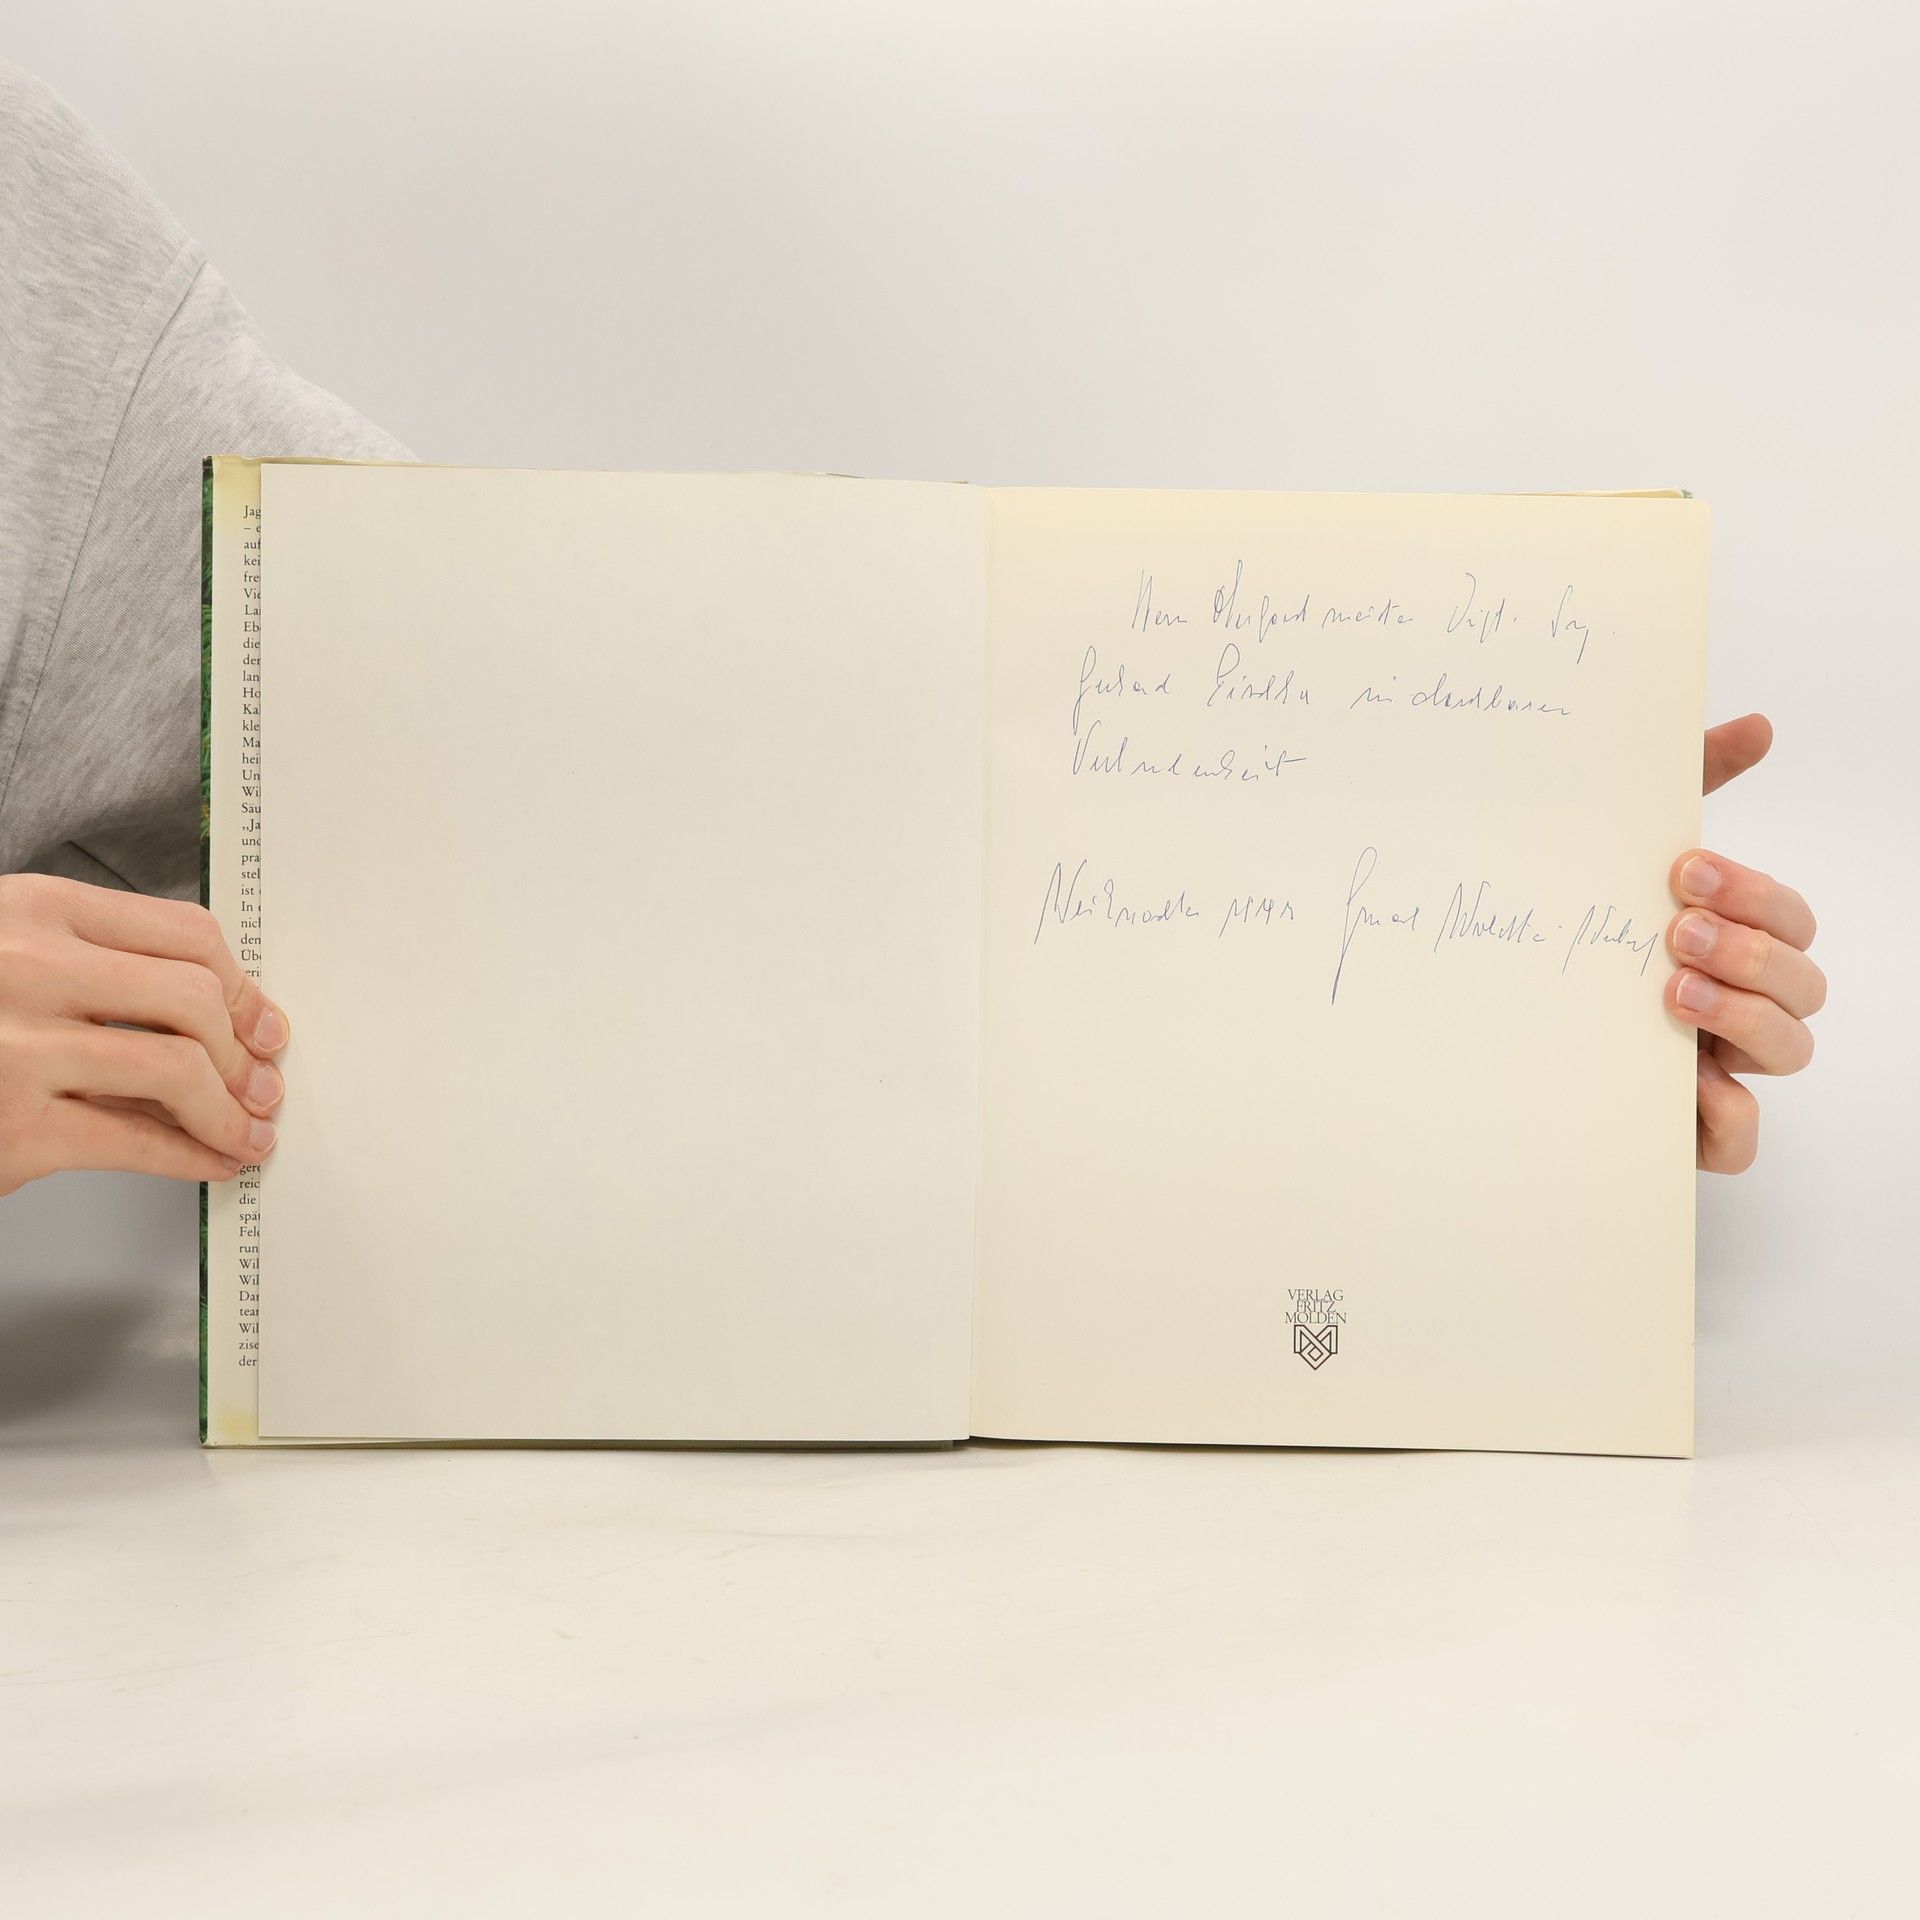 Jag
– e
auf
kei
fre
Vie
Lan
Ebe
die
der
lan
Ho
Kal
kle
Ma
hei
Un
Wil
Säu
„Ja
und
pra
stel
ist
In
nich
den
Übe
eri
gere
reic
die
spät
Feld
run
Wil
Wil
Dar
tear
Wil
zise
der
Herrn Oberforstmeister Dipl. Ing.
Gerhard in dankbarer
Verbundenheit
Weihnachten
VERLAG
FRITZ
MOLDEN